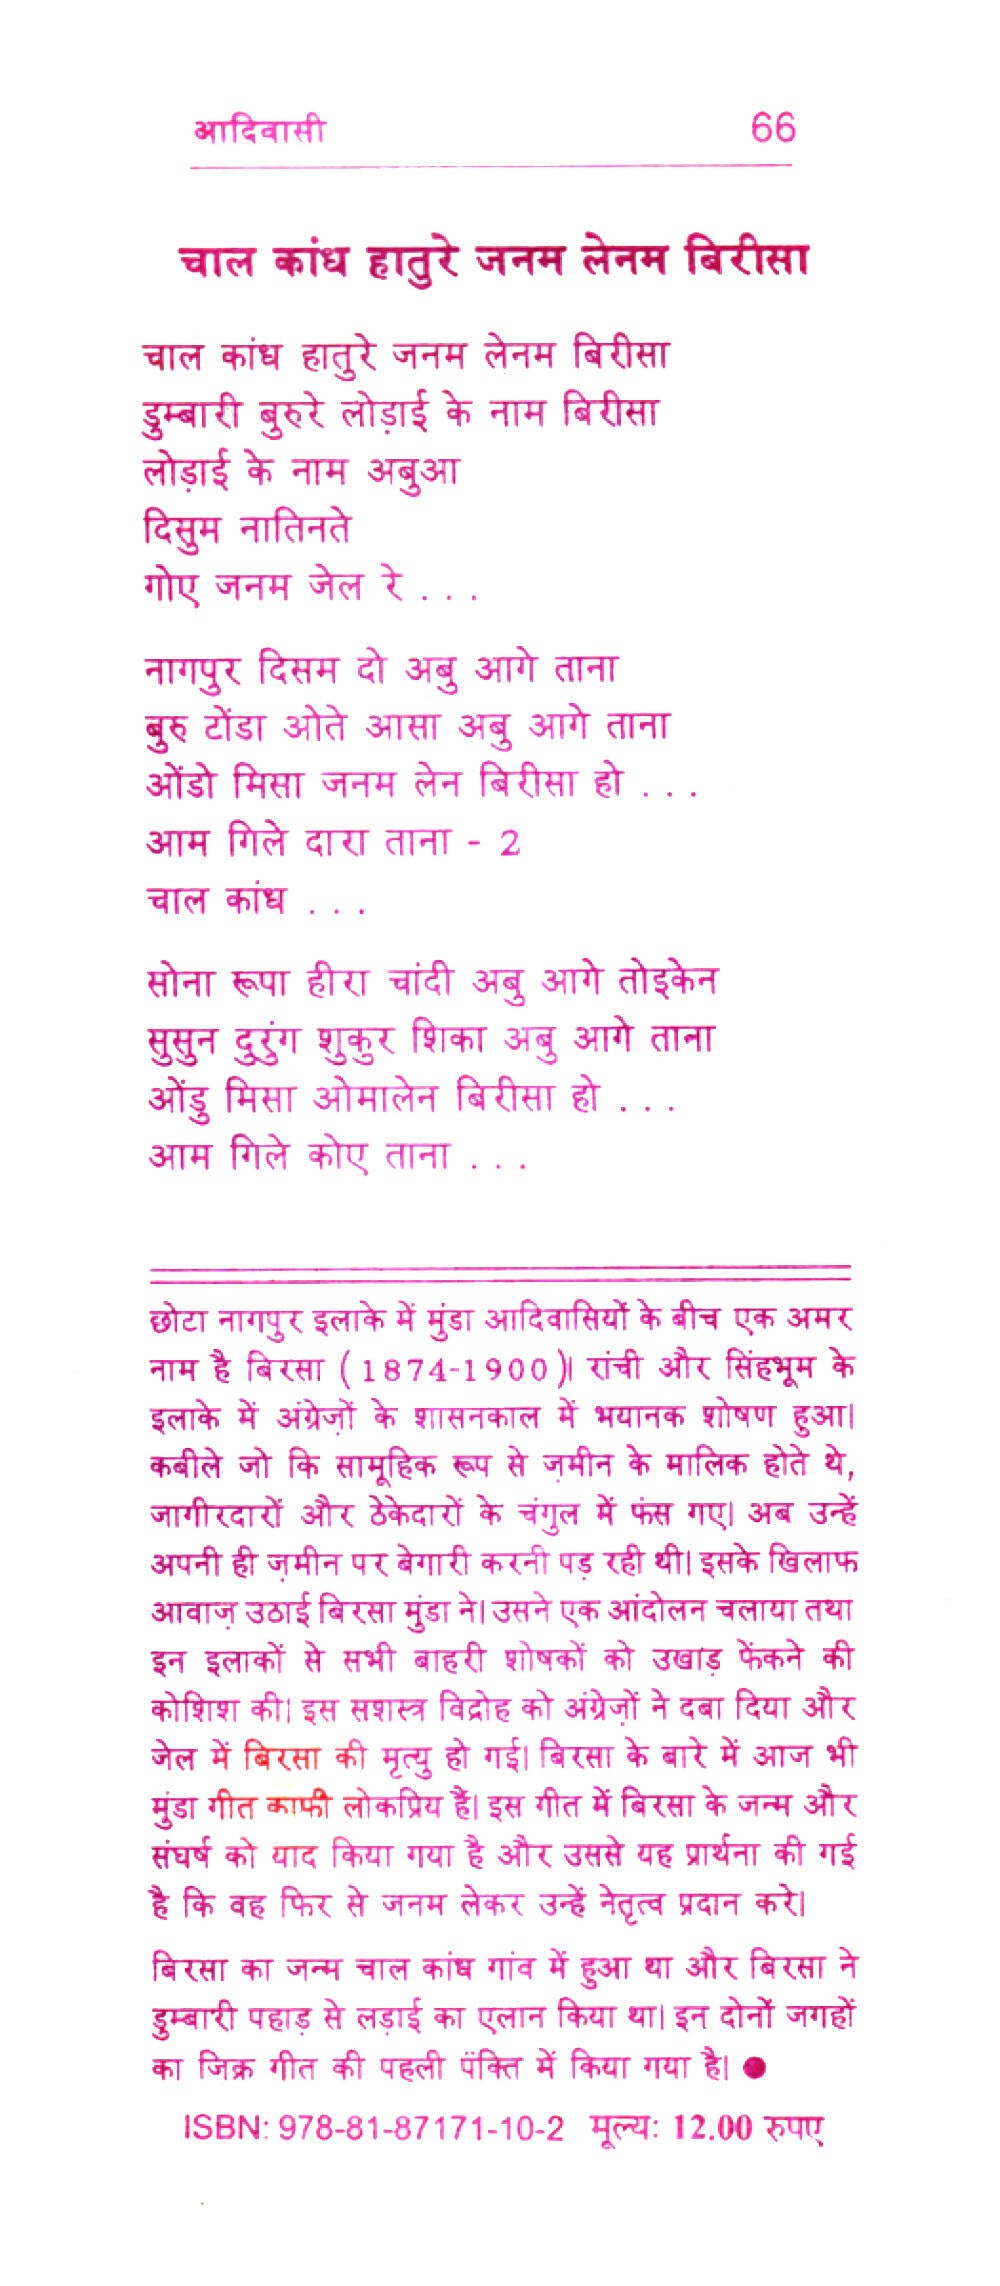 आदिवासी 66
चाल कांध हातुरे जनम लेनम बिरीसा
चाल कांध हातुरे जनम लेनम बिरीसा
डुम्बारी बुरुरे लोड़ाई के नाम बिरीसा
लोड़ाई के नाम अबुआ
दिसुम नातिनते
गोए जनम जेल रे . . .
नागपुर दिसम दो अबु आगे ताना
बुरु टोंडा ओते आसा अबु आगे ताना
ओंडो मिसा जनम लेन बिरीसा हो . . .
आम गिले दारा ताना - 2
चाल कांध . . .
सोना रूपा हीरा चांदी अबु आगे तोइकेन
सुसुन दुरुंग शुकुर शिका अबु आगे ताना
ओंडु मिसा ओमालेन बिरीसा हो . . .
आम गिले कोए ताना . . .
छोटा नागपुर इलाके में मुंडा आदिवासियों के बीच एक अमर
नाम है बिरसा (1874-1900)। रांची और सिंहभूम के
इलाके में अंग्रेज़ों के शासनकाल में भयानक शोषण हुआ।
कबीले जो कि सामूहिक रूप से ज़मीन के मालिक होते थे,
जागीरदारों और ठेकेदारों के चंगुल में फंस गए। अब उन्हें
अपनी ही ज़मीन पर बेगारी करनी पड़ रही थी। इसके खिलाफ
आवाज़ उठाई बिरसा मुंडा ने। उसने एक आंदोलन चलाया तथा
इन इलाकों से सभी बाहरी शोषकों को उखाड़ फेंकने की
कोशिश की। इस सशस्त्र विद्रोह को अंग्रेज़ों ने दबा दिया और
जेल में बिरसा की मृत्यु हो गई। बिरसा के बारे में आज भी
मुंडा गीत काफी लोकप्रिय हैं। इस गीत में बिरसा के जन्म और
संघर्ष को याद किया गया है और उससे यह प्रार्थना की गई
है कि वह फिर से जनम लेकर उन्हें नेतृत्व प्रदान करे।
बिरसा का जन्म चाल कांध गांव में हुआ था और बिरसा ने
डुम्बारी पहाड़ से लड़ाई का एलान किया था। इन दोनों जगहों
का जिक्र गीत की पहली पंक्ति में किया गया है। ●
ISBN: 978-81-87171-10-2 मूल्य: 12.00 रुपए